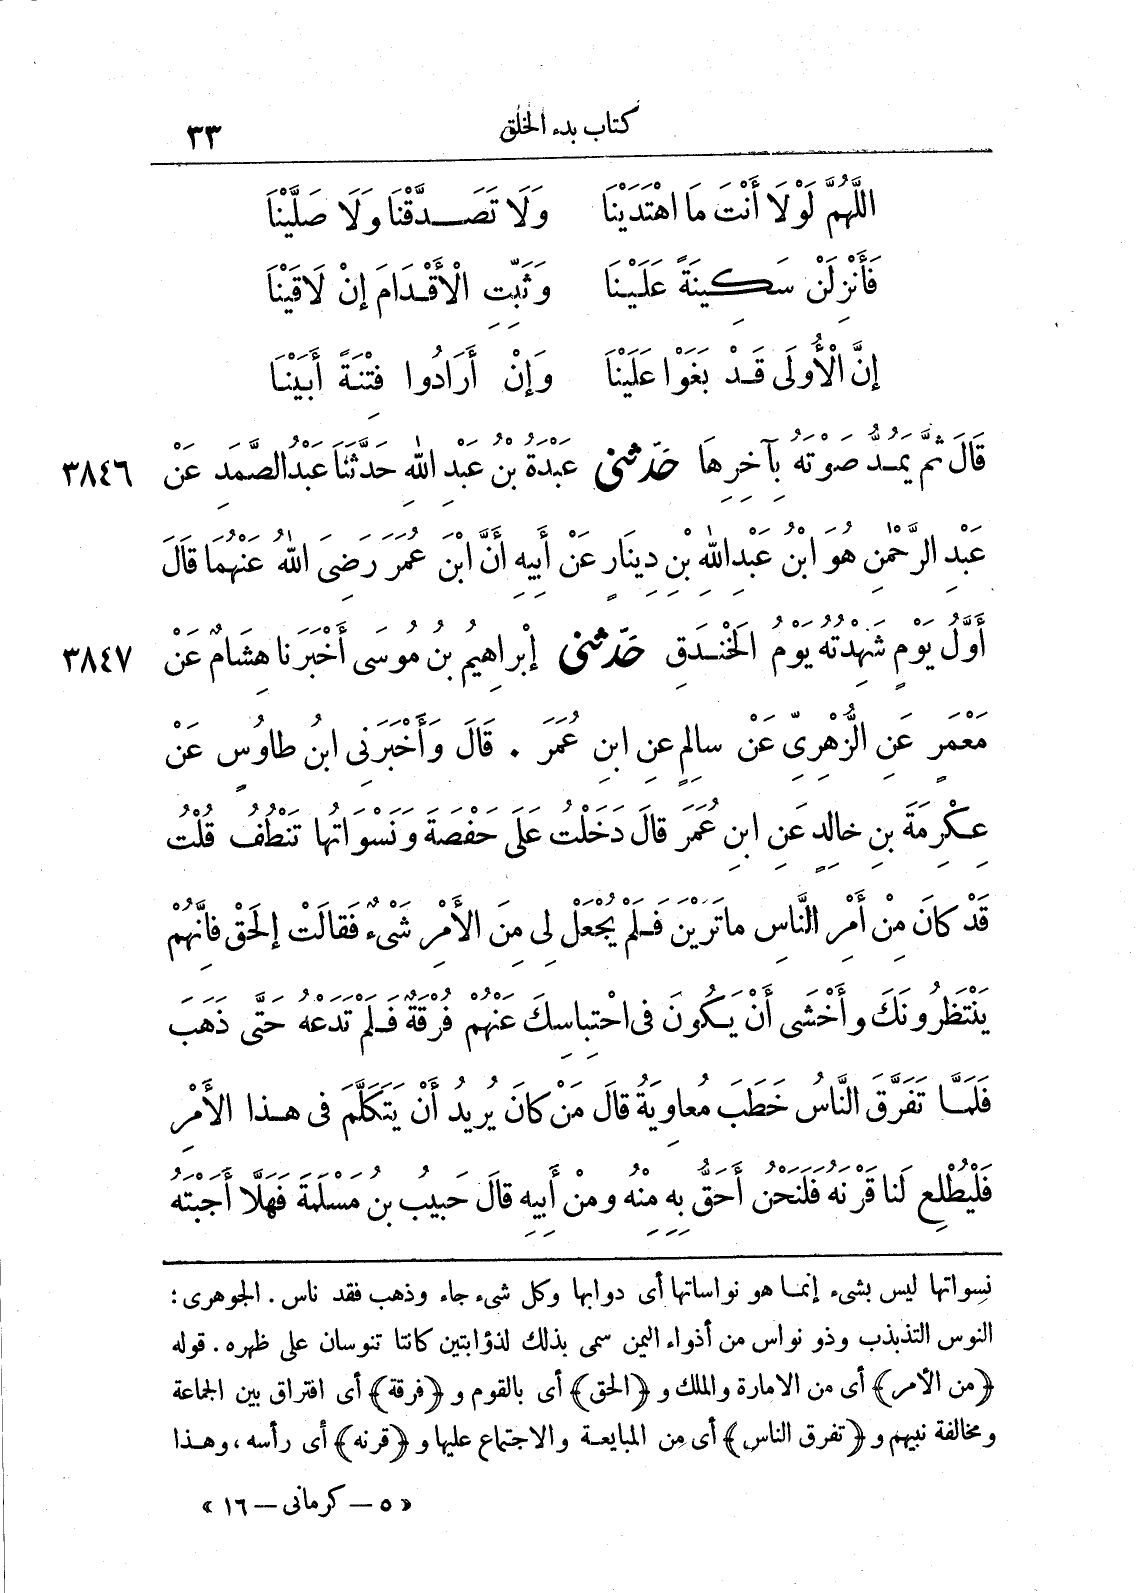 كتاب بدء الخلق ٣٣
اللَّهُمَّ لَوْلَا أَنْتَ مَا اهْتَدَيْنَا وَلَا تَصَدَّقْنَا وَلَا صَلَّيْنَا
فَأَنْزِلَنْ سَكِينَةً عَلَيْنَا وَثَبِّتِ الْأَقْدَامَ إِنْ لَاقَيْنَا
إِنَّ الْأُولَى قَدْ بَغَوْا عَلَيْنَا وَإِنْ أَرَادُوا فِتْنَةً أَبَيْنَا
قَالَ ثُمَّ يَمُدُّ صَوْتَهُ بِآخِرِهَا حَدَّثَنِى عَبْدَةُ بْنُ عَبْدِ اللهِ حَدَّثَنَا عَبْدُ الصَّمَدِ عَنْ ٣٨٤٦
عَبْدِ الرَّحْمٰنِ هُوَ ابْنُ عَبْدِ اللهِ بْنِ دِينَارٍ عَنْ أَبِيهِ أَنَّ ابْنَ عُمَرَ رَضِىَ اللهُ عَنْهُمَا قَالَ
أَوَّلُ يَوْمٍ شَهِدْتُهُ يَوْمُ الْخَنْدَقِ حَدَّثَنِى إِبْرَاهِيمُ بْنُ مُوسَى أَخْبَرَنَا هِشَامٌ عَنْ ٣٨٤٧
مَعْمَرٍ عَنِ الزُّهْرِىِّ عَنْ سالِمٍ عَنِ ابنِ عُمَرَ . قَالَ وَأَخْبَرَنِى ابنُ طاوُسٍ عَنْ
عِكْرِمَةَ بنِ خالِدٍ عَنِ ابنِ عُمَرَ قالَ دَخَلْتُ عَلَى حَفْصَةَ وَنَسْوَاتُها تَنْطُفُ قُلْتُ
قَدْ كانَ مِنْ أَمْرِ النَّاسِ ماتَرَيْنَ فَلَمْ يُجْعَلْ لِى مِنَ الأَمْرِ شَىْءٌ فَقالَتْ إِلْحَقْ فانَّهُمْ
يَنْتَظِرُونَكَ وأَخْشَى أَنْ يَكُونَ فى احْتِباسِكَ عَنْهُمْ فُرْقَةٌ فَلَمْ تَدَعْهُ حَتَّى ذَهَبَ
فَلَمَّا تَفَرَّقَ النَّاسُ خَطَبَ مُعاوِيَةُ قالَ مَنْ كانَ يُرِيدُ أَنْ يَتَكَلَّمَ فى هذا الأَمْرِ
فَلْيُطْلِعْ لَنا قَرْنَهُ فَلَنَحْنُ أَحَقُّ بِهِ مِنْهُ ومِنْ أَبِيهِ قالَ حَبِيبُ بنُ مَسْلَمَةَ فَهَلَّا أَجَبْتَهُ
نسواتها ليس بشىء إنما هو نواساتها أى دوابها وكل شىء جاء وذهب فقد ناس . الجوهرى :
النوس التذبذب وذو نواس من أذواء اليمن سمى بذلك لذؤابتين كانتا تنوسان على ظهره . قوله
﴿من الأمر﴾ أى من الامارة والملك و ﴿الحق﴾ أى بالقوم و ﴿فرقة﴾ أى افتراق بين الجماعة
ومخالفة نبيهم و ﴿تفرق الناس﴾ أى من المبايعة والاجتماع عليها و ﴿قرنه﴾ أى رأسه ، وهذا
« ٥ – كرمانى – ١٦ »